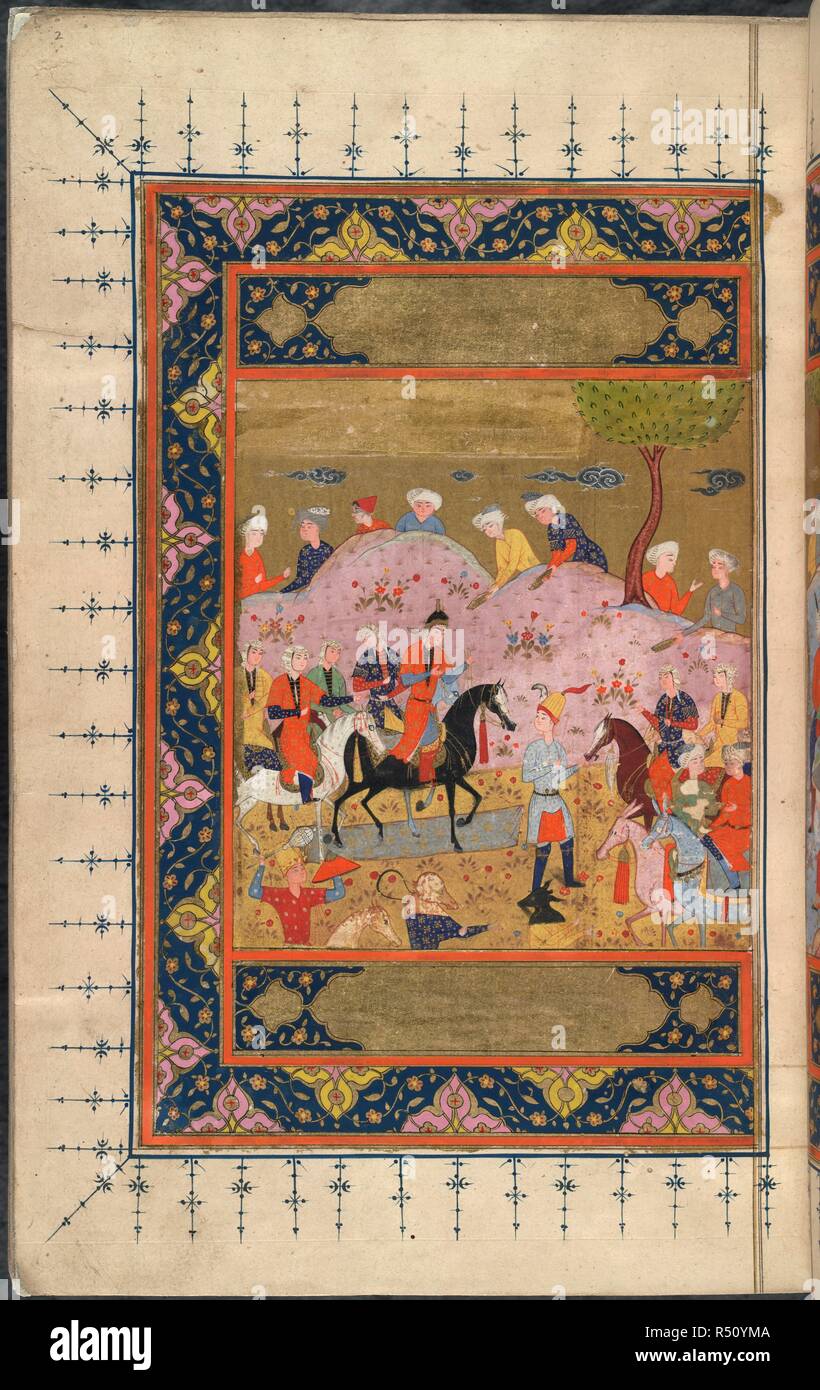 2
alamy
alamy
Image ID: R50YMA
www.alamy.com